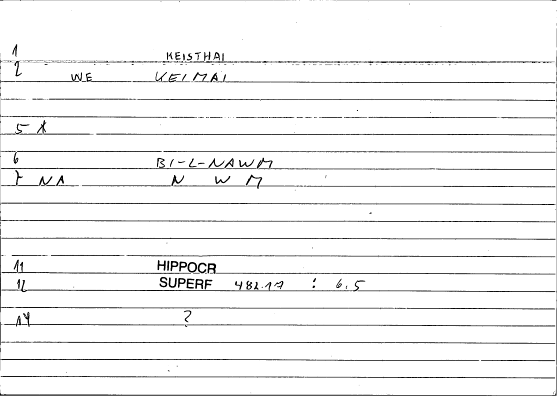 1 KEISTHAI
2 WE KEIMAI
5 A
6 BI-L-NAWM
7 NA N W M
11 HIPPOCR
12 SUPERF 482.17 : 6,5
14 ?